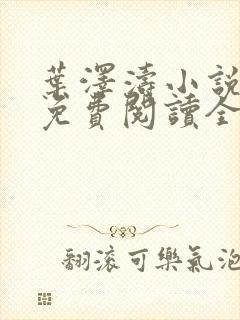 葉澤濤小說
免費閱讀全
翻滾可樂氣泡